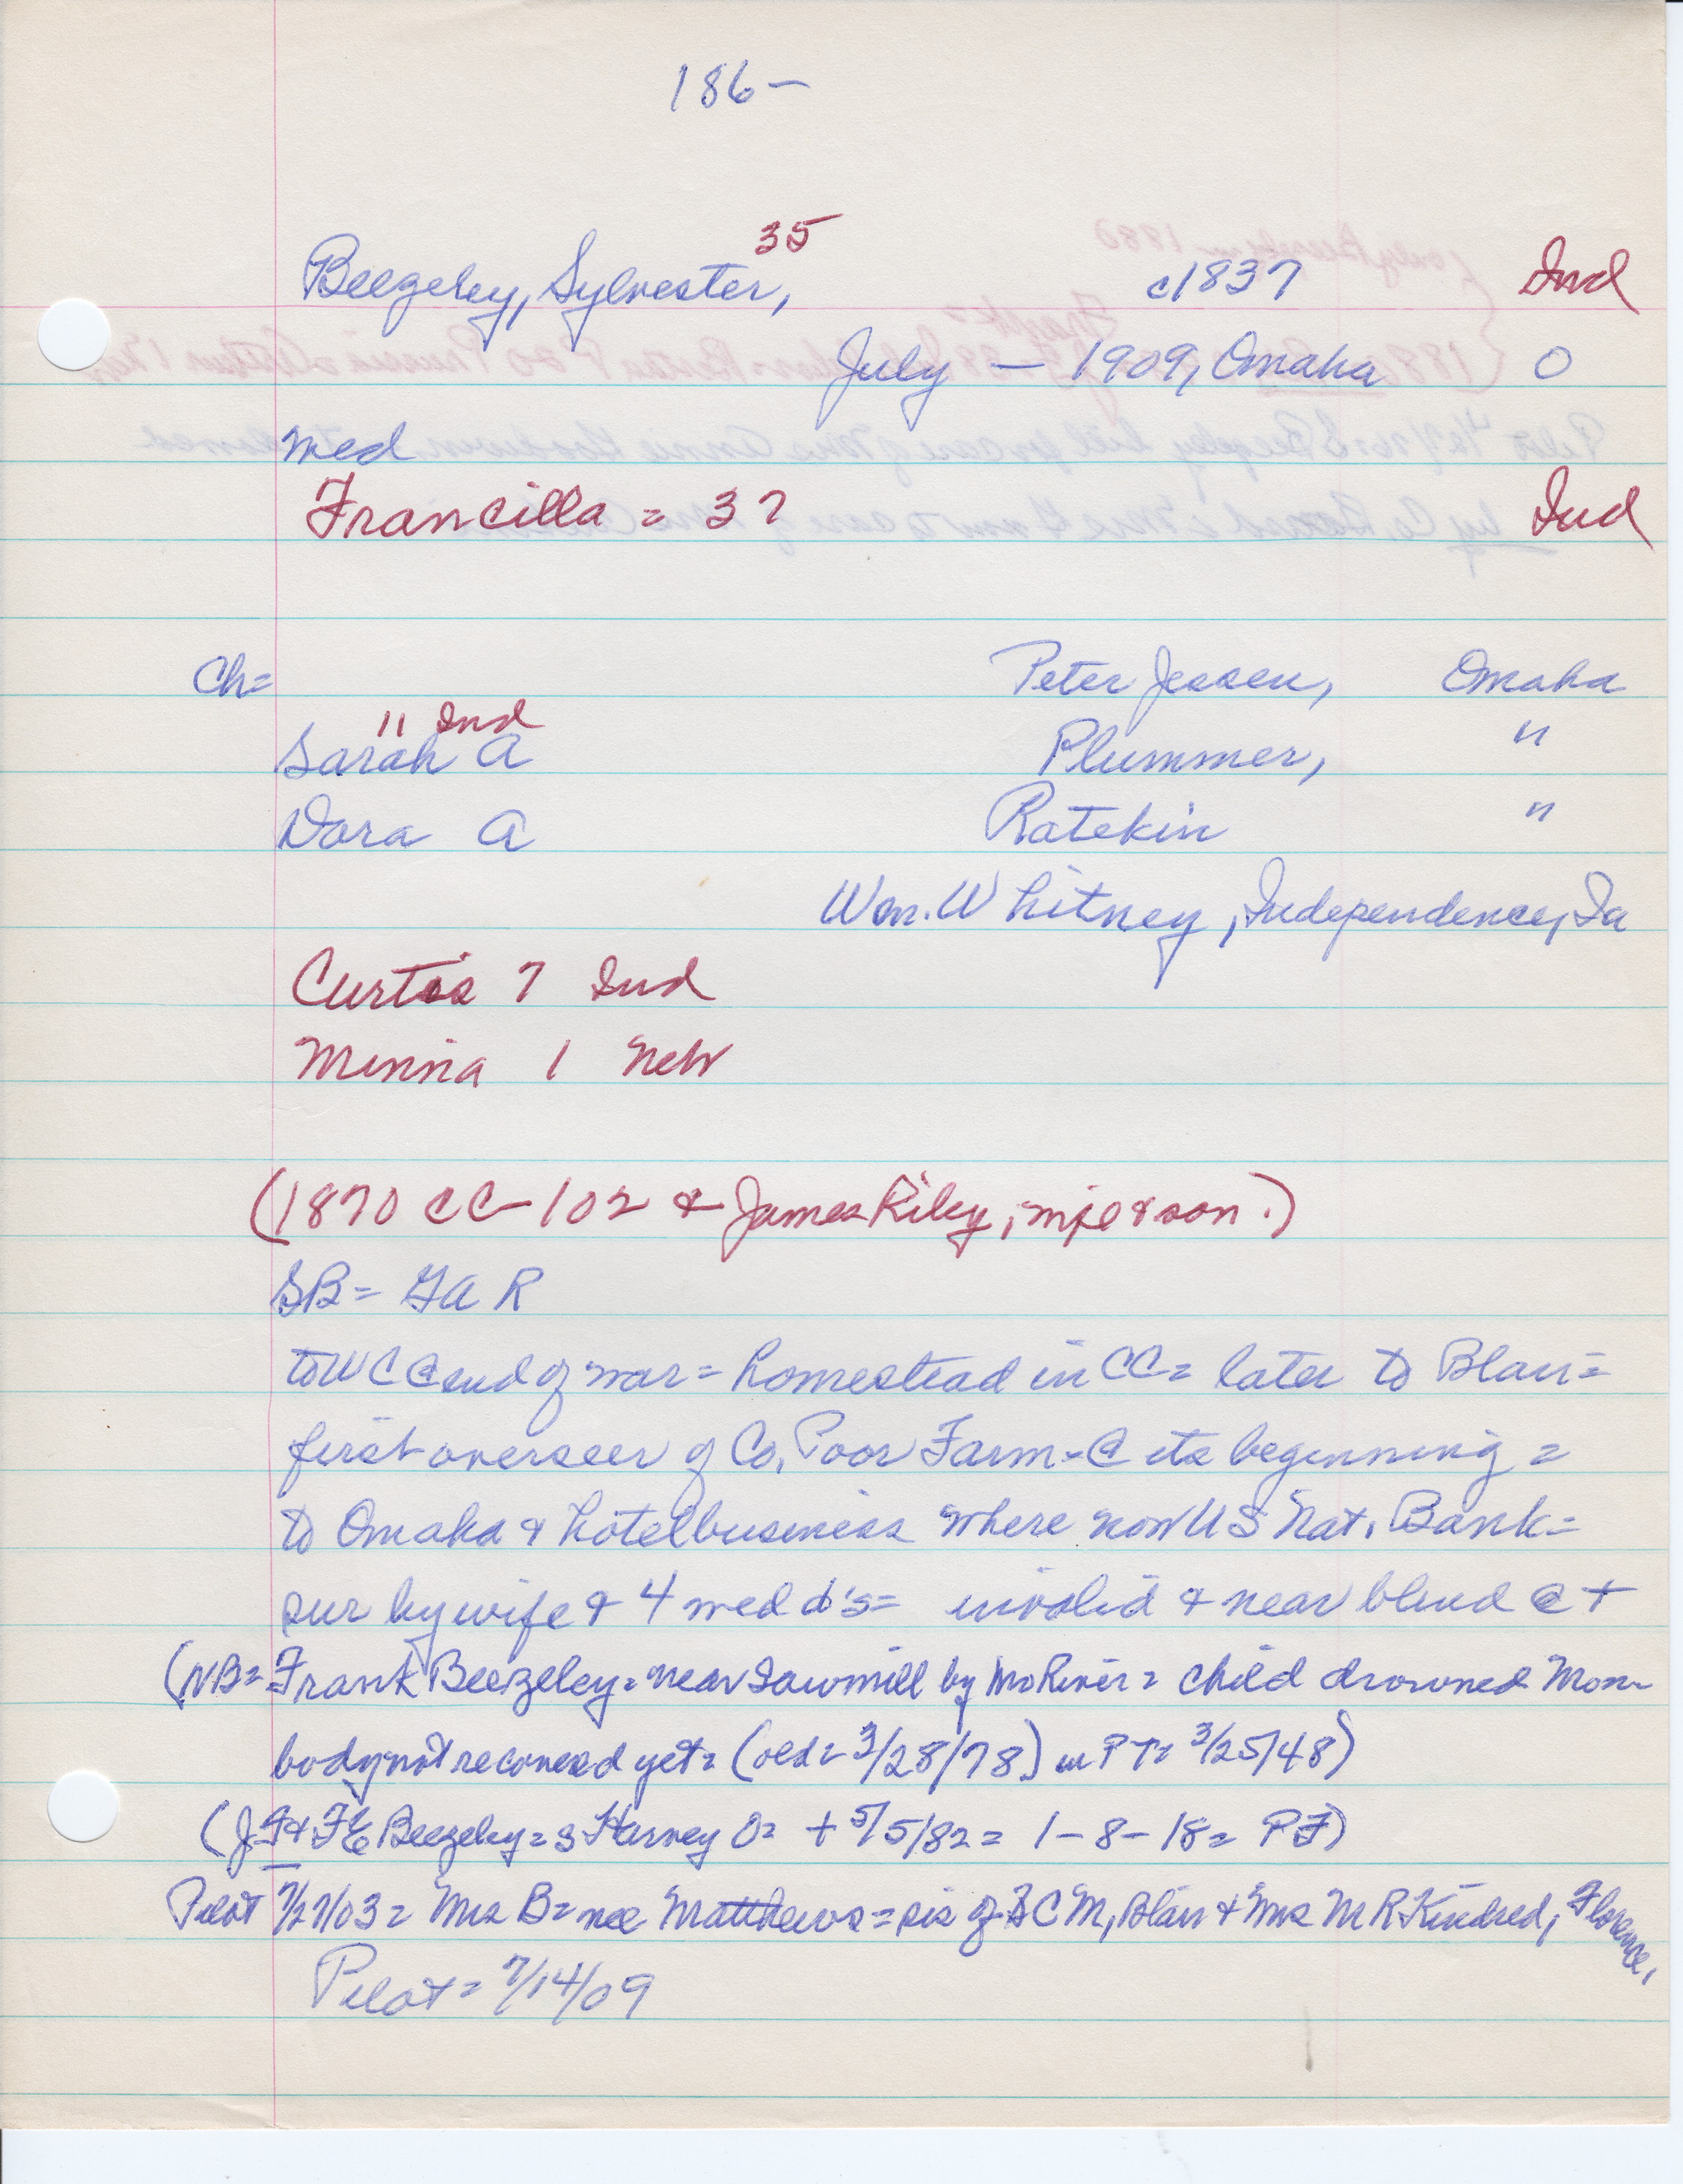 186-
35
Beezeley, Sylvester, c1837 Ind
July — 1909, Omaha O
med
Francilla = 37 Ind
Ch= Peter Jessen, Omaha
11 Ind
Sarah A Plummer, "
Dora A Ratekin "
Wm. Whitney, Independence, Ia
Curtis 7 Ind
Minna 1 Neb
(1870 CC-102 & James Riley, wife & son.)
SB = GAR
to WC @ end of war = homestead in CC = later to Blair =
first overseer of Co. Poor Farm - @ its beginning =
to Omaha & hotel business where now US Nat. Bank =
sur by wife & 4 med d's = invalid & near blind @ +
(NB = Frank Beezeley = near Sawmill by Mo River = child drowned Mon
body not recovered yet = (old = 3/28/78) in PT = 3/25/48)
& FE Beezeley = s Harvey O = + 5/5/82 = 1-8-18 = PF)
Pilot 7/27/03 = Mrs B = nee Matthews = sis of CM, Blair & Mrs MR Kindred, Florence,
Pilot = 7/14/09